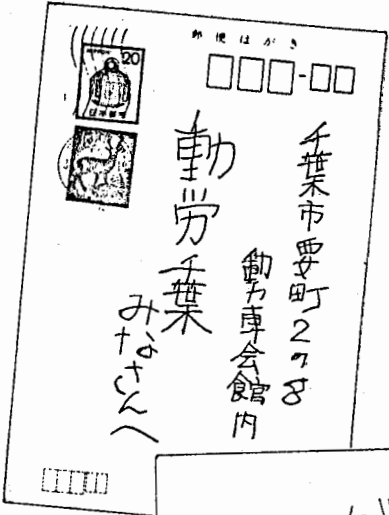 郵便はがき
20
千葉市要町2の8
動力車会館内
動労千葉
みなさんへ